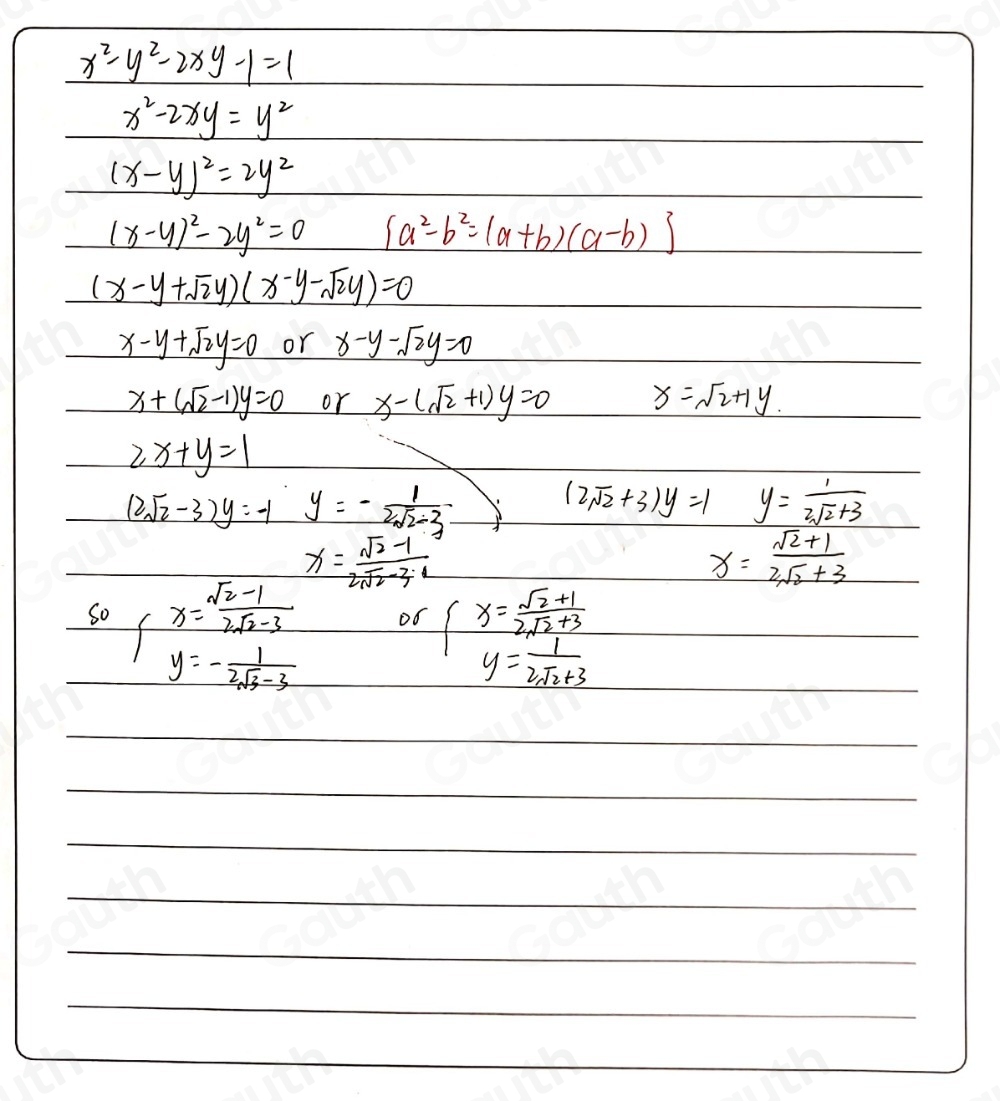 x²-y²-2xy-1=1
x²-2xy=y²
(x-y)²=2y²
(x-y)²-2y²=0 {a²-b²=(a+b)(a-b)}
(x-y+√2y)(x-y-√2y)=0
x-y+√2y=0 or x-y-√2y=0
x+(√2-1)y=0 or x-(√2+1)y=0 x=√2+1y.
2x+y=1
(2√2-3)y=-1 y=-1/(2√2-3) (2√2+3)y=1 y=1/(2√2+3)
x=(√2-1)/(2√2-3) x=(√2+1)/(2√2+3)
so { x=(√2-1)/(2√2-3) or { x=(√2+1)/(2√2+3)
y=-1/(2√3-3) y=1/(2√2+3)